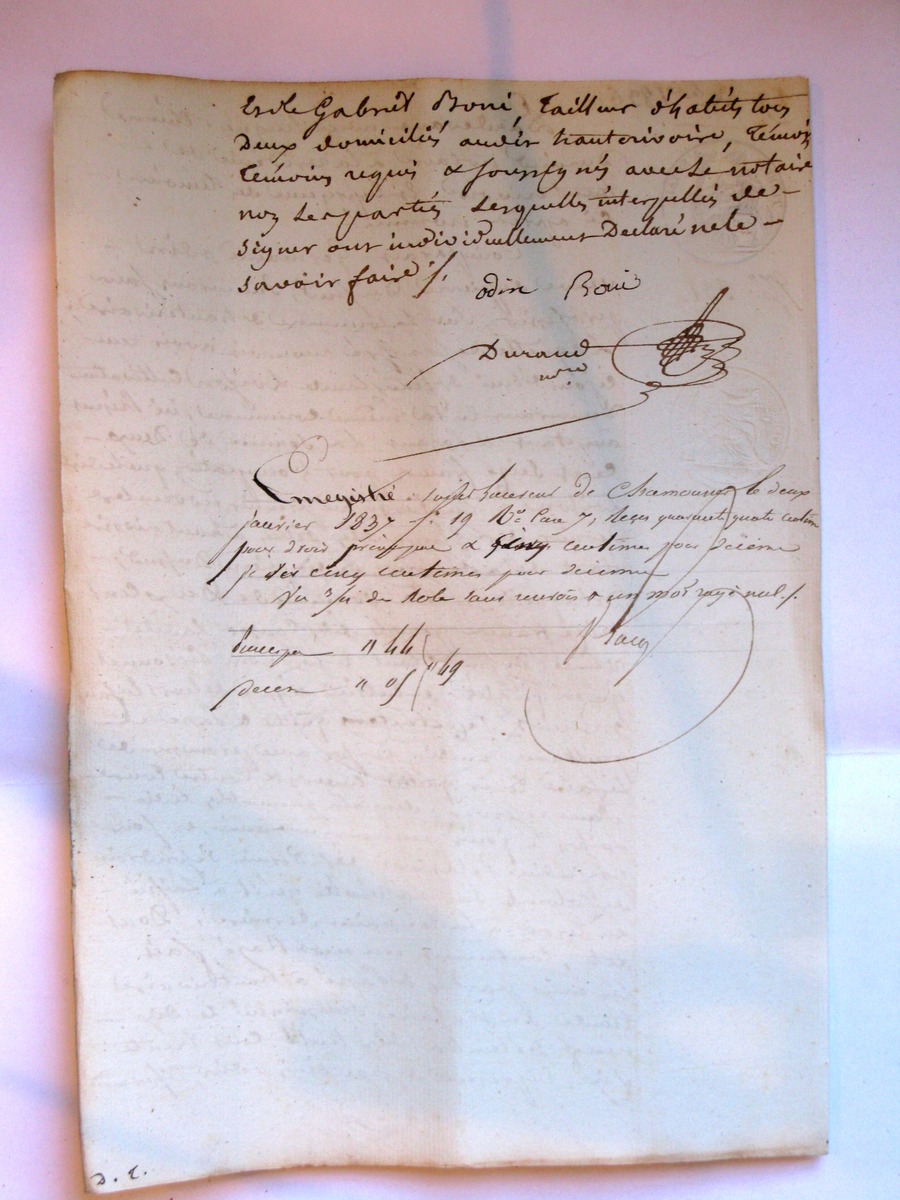 Et de Gabriël Boni, Tailleur d'habits tous
Deux domiciliés audit hauterivoire, Témoin
Témoins requis & soussignés avec Le notaire
non Les parties Lesquelles interpellés de
signer ont individuellement Déclaré ne le
savoir faire ·/.
odin Boni
Durand
nore
Enregistré à St Laurent de Chamousset le deux
janvier 1837 f° 19 Vo Case 7, Reçu quarante quatre centimes
pour droit principal & centimes pour décime
& cinq centimes pour décime
du Rôle sans renvois & un mot rayé nul ·/.
Principal " 44
" 49
Décime " 05
D. L.